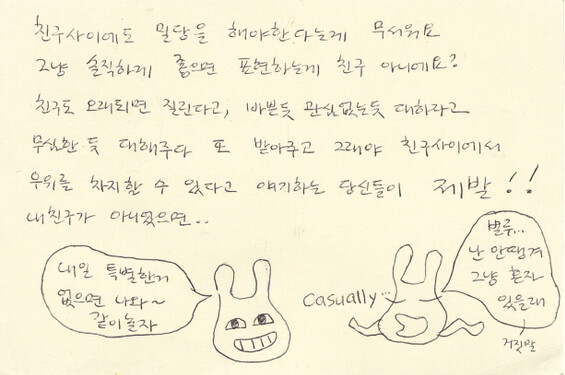 친구사이에도 밀당을 해야한다는게 무서워요
그냥 솔직하게 좋으면 표현하는게 친구 아니에요?
친구도 오래되면 질린다고, 바쁜듯 관심없는듯 대하라고
무심한 듯 대해주다 또 받아주고 그래야 친구사이에서
우위를 차지할 수 있다고 얘기하는 당신들이 제발!!
내친구가 아니었으면..
내일 특별한거
없으면 나와~
같이놀자
casually...
별루...
난 안땡겨
그냥 혼자
있을래
거짓말